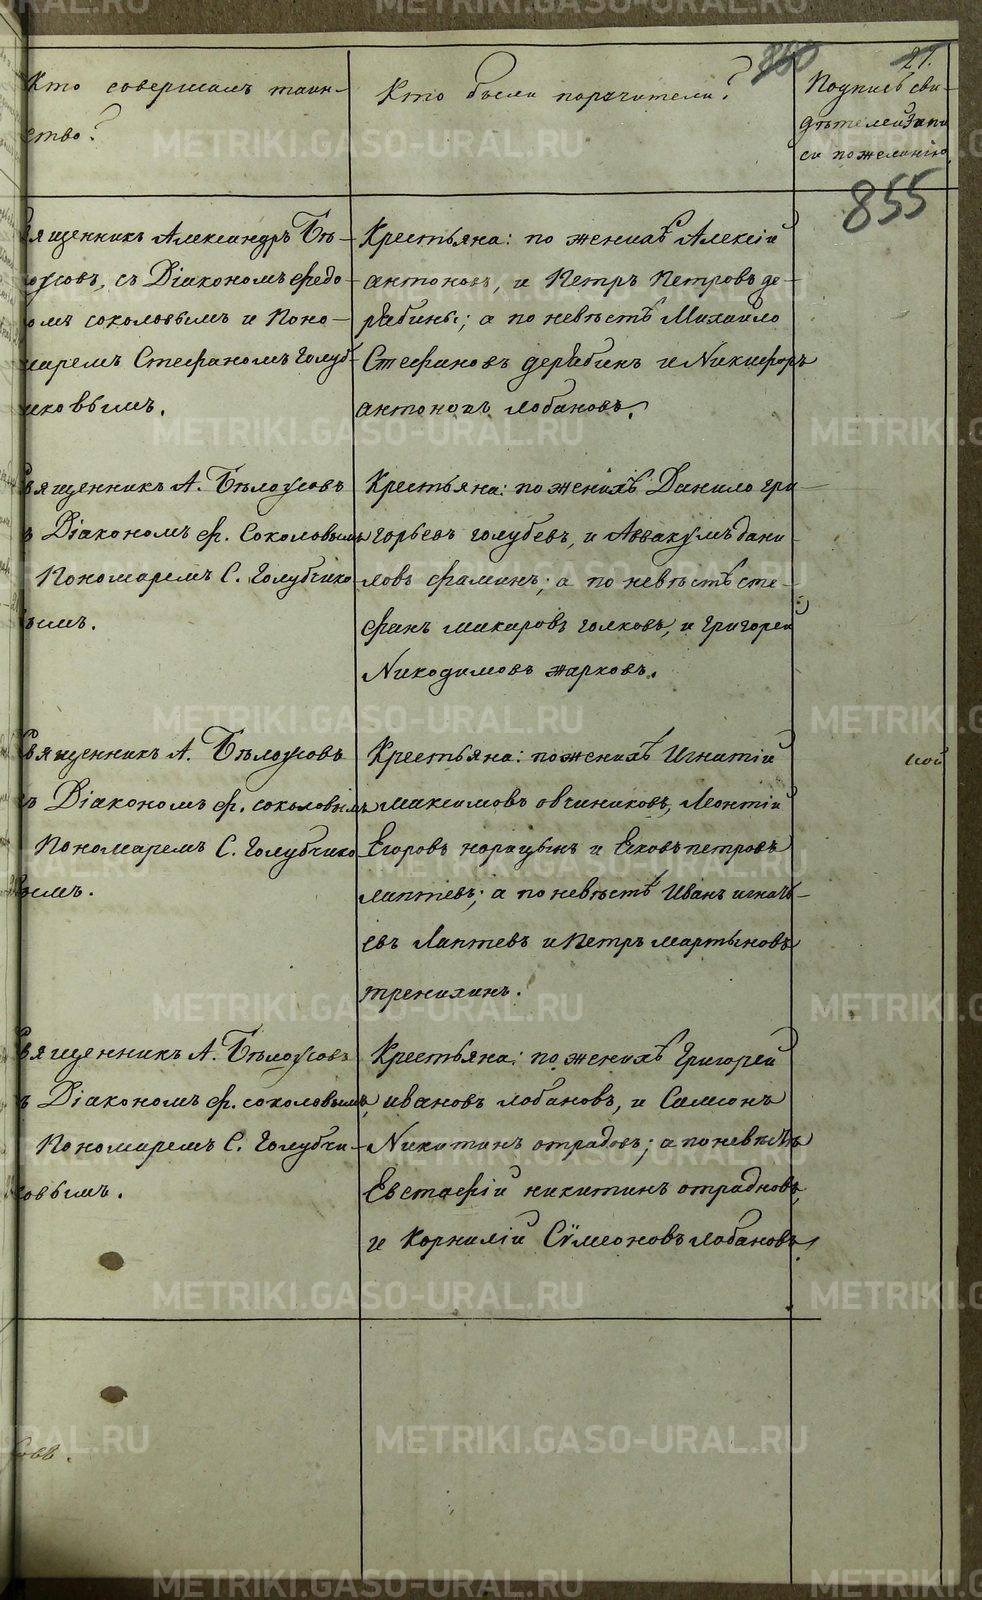 Кто совершалъ таин-
ство?
Кто были поручители?
27.
Подпись сви-
дѣтелей запи
си по желанію
855
вященникъ Александръ Бѣ-
оусовъ, съ Діакономъ Федо-
омъ соколовымъ и Поно-
маремъ Стефаномъ Голуб-
иковымъ.
Крестьяна: по женихѣ Алексій
антоновъ, и Петръ Петровъ де-
рябины; а по невѣстѣ Михаило
Стефановъ дерябинъ и Никифоръ
антоновъ лобановъ.
вященникъ А. Бѣлоусовъ
ъ Діакономъ Ф. Соколовымъ
Пономаремъ С. Голубчико
вымъ.
Крестьяна: по женихѣ Данило гри-
горьевъ голубевъ, и Аввакумъ дани-
ловъ фаминъ; а по невѣстѣ сте-
фанъ макаровъ голковъ, и григорей
Никодимовъ жарковъ.
вященникъ А. Бѣлоусовъ
ъ Діакономъ Ф. соколовымъ
Пономаремъ С. Голубчико
вымъ.
Крестьяна: по женихѣ Игнатій
максимовъ овчиниковъ, Леонтій
Егоровъ норицынъ и Яковъ петровъ
лаптевъ; а по невѣстѣ Иванъ игнать-
евъ Лаптевъ и Петръ мартыновъ
тренихинъ.
кой
вященникъ А. Бѣлоусовъ
ъ Діакономъ Ф. соколовымъ,
Пономаремъ С. Голубчи-
ковымъ.
Крестьяна: по женихѣ Григорей
ивановъ лобановъ, и Самсонъ
Никитинъ отрадновъ; а по невѣстѣ
Евстафій никитинъ отрадновъ,
и Корнилій Сѵмеоновъ лобановъ,
METRIKI.GASO-URAL.RU